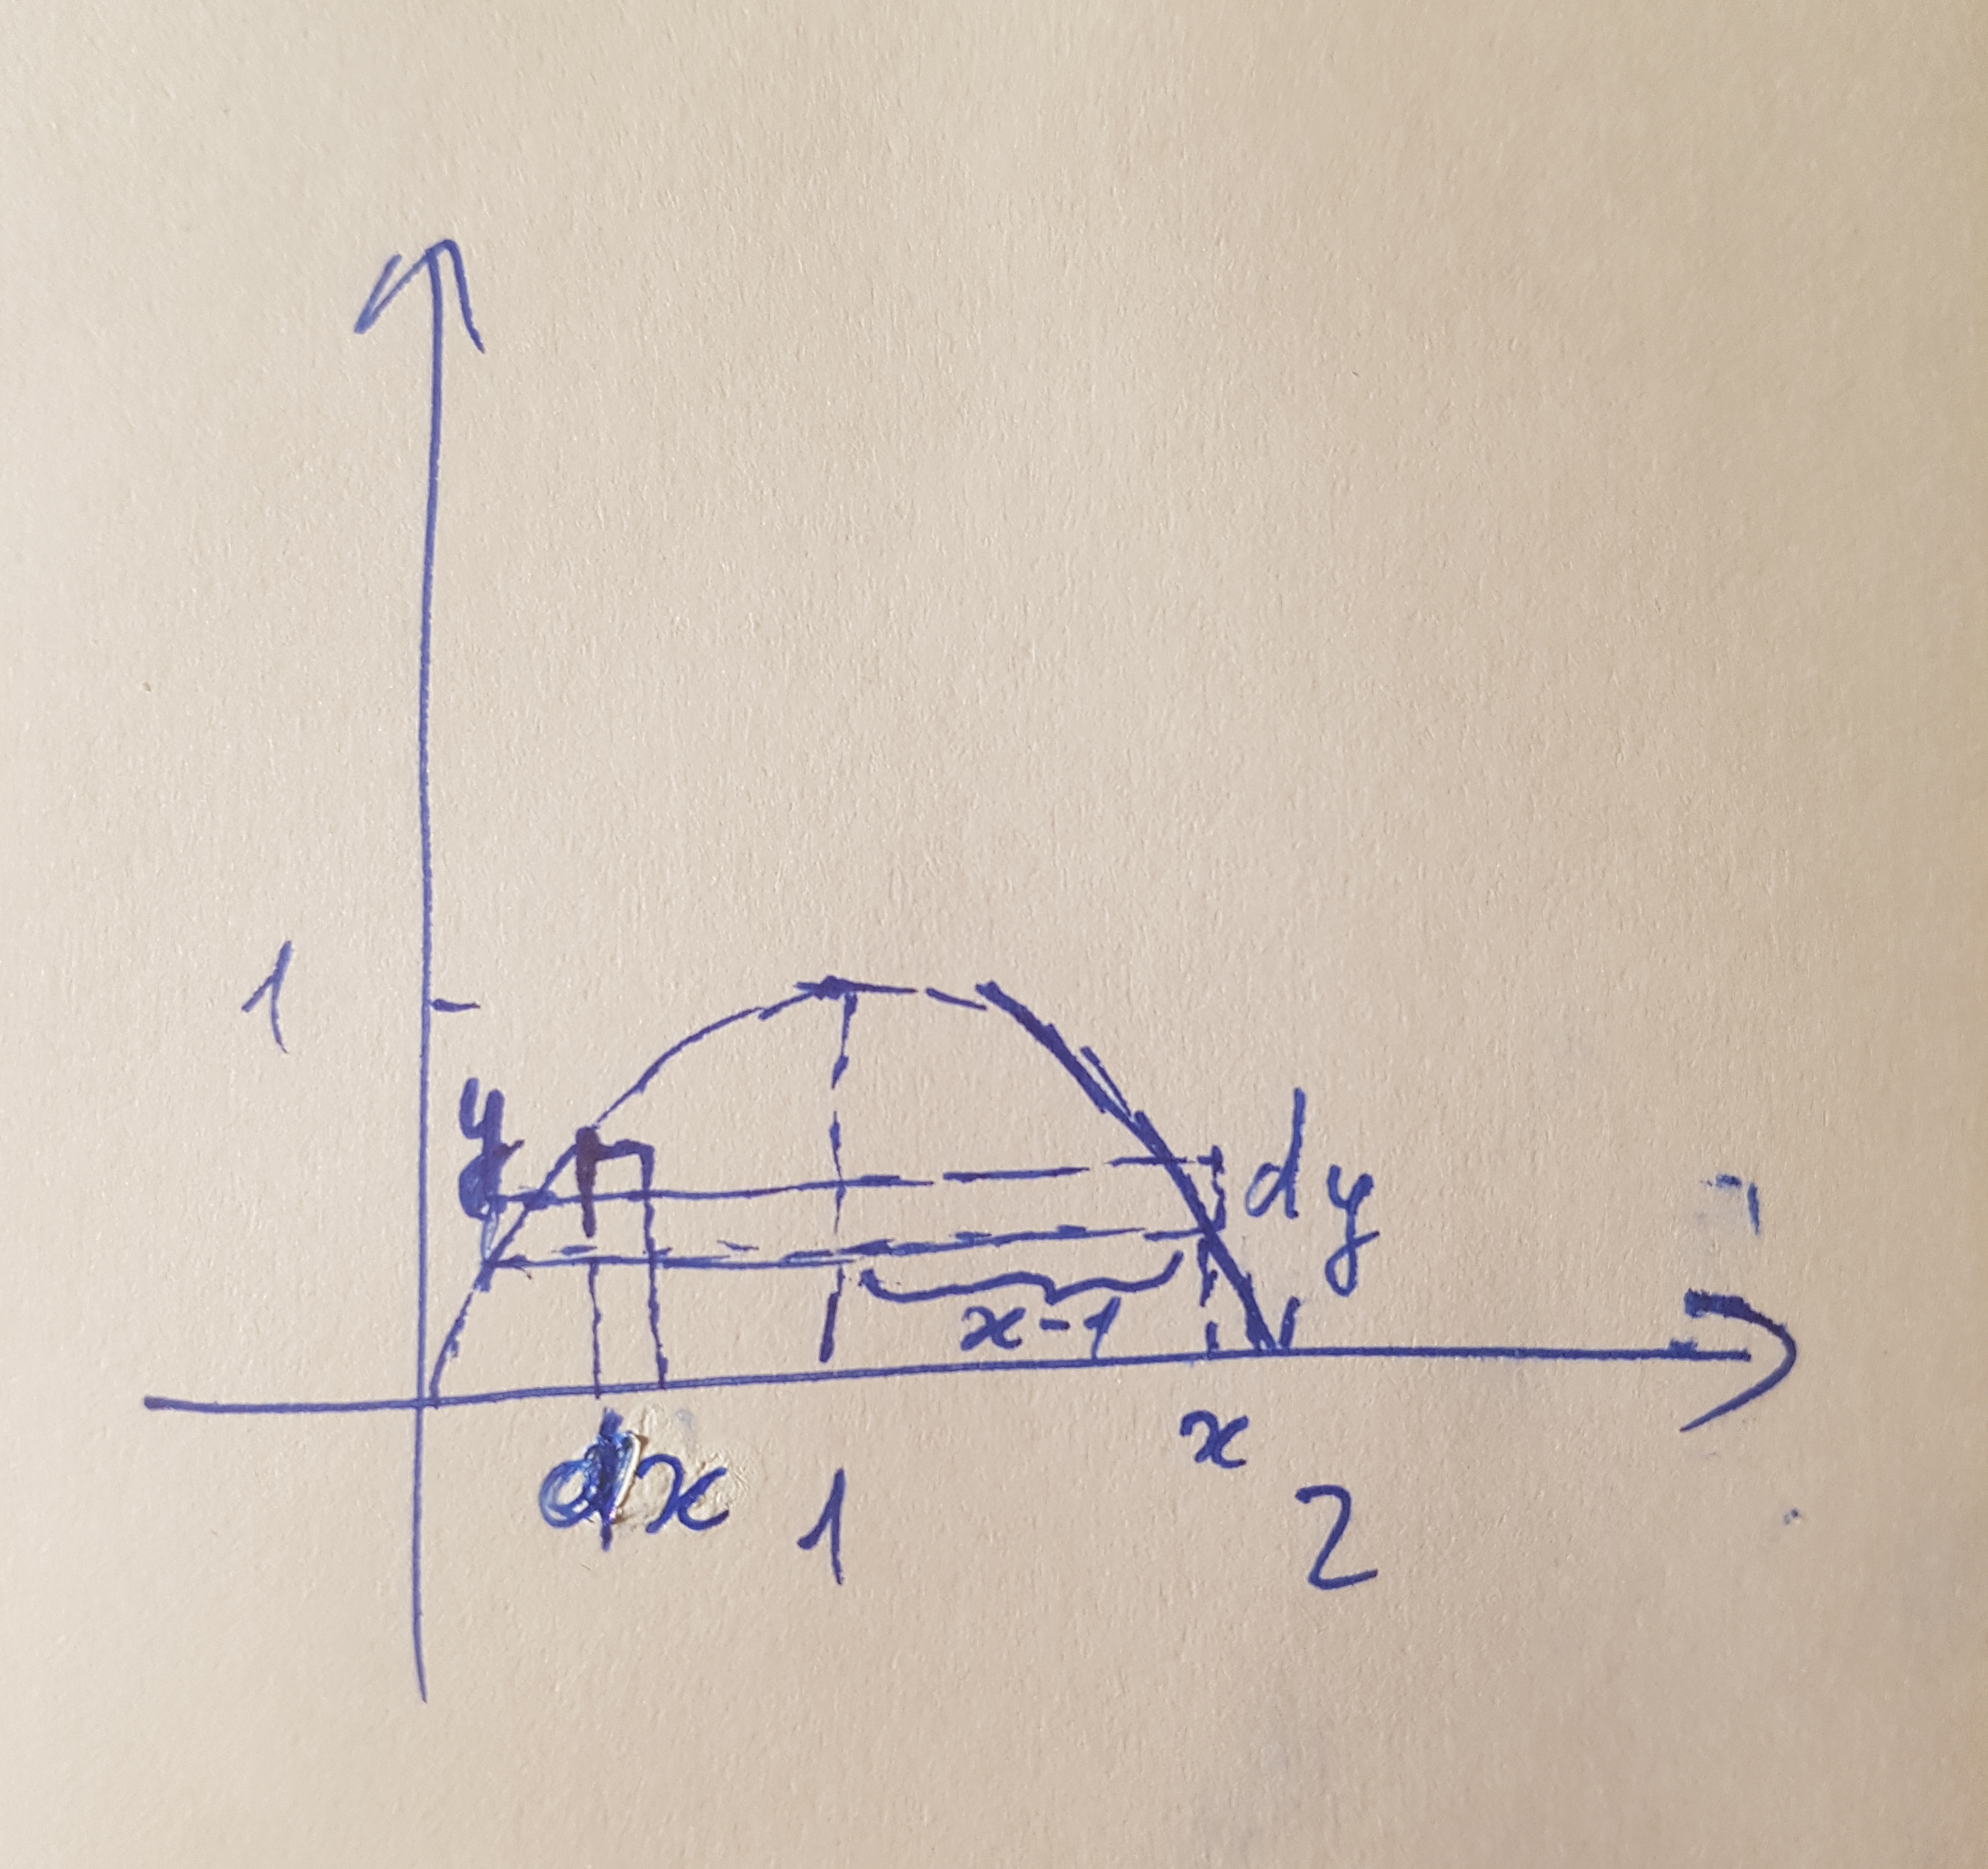 1
y
dy
x-1
x
dx
1
2